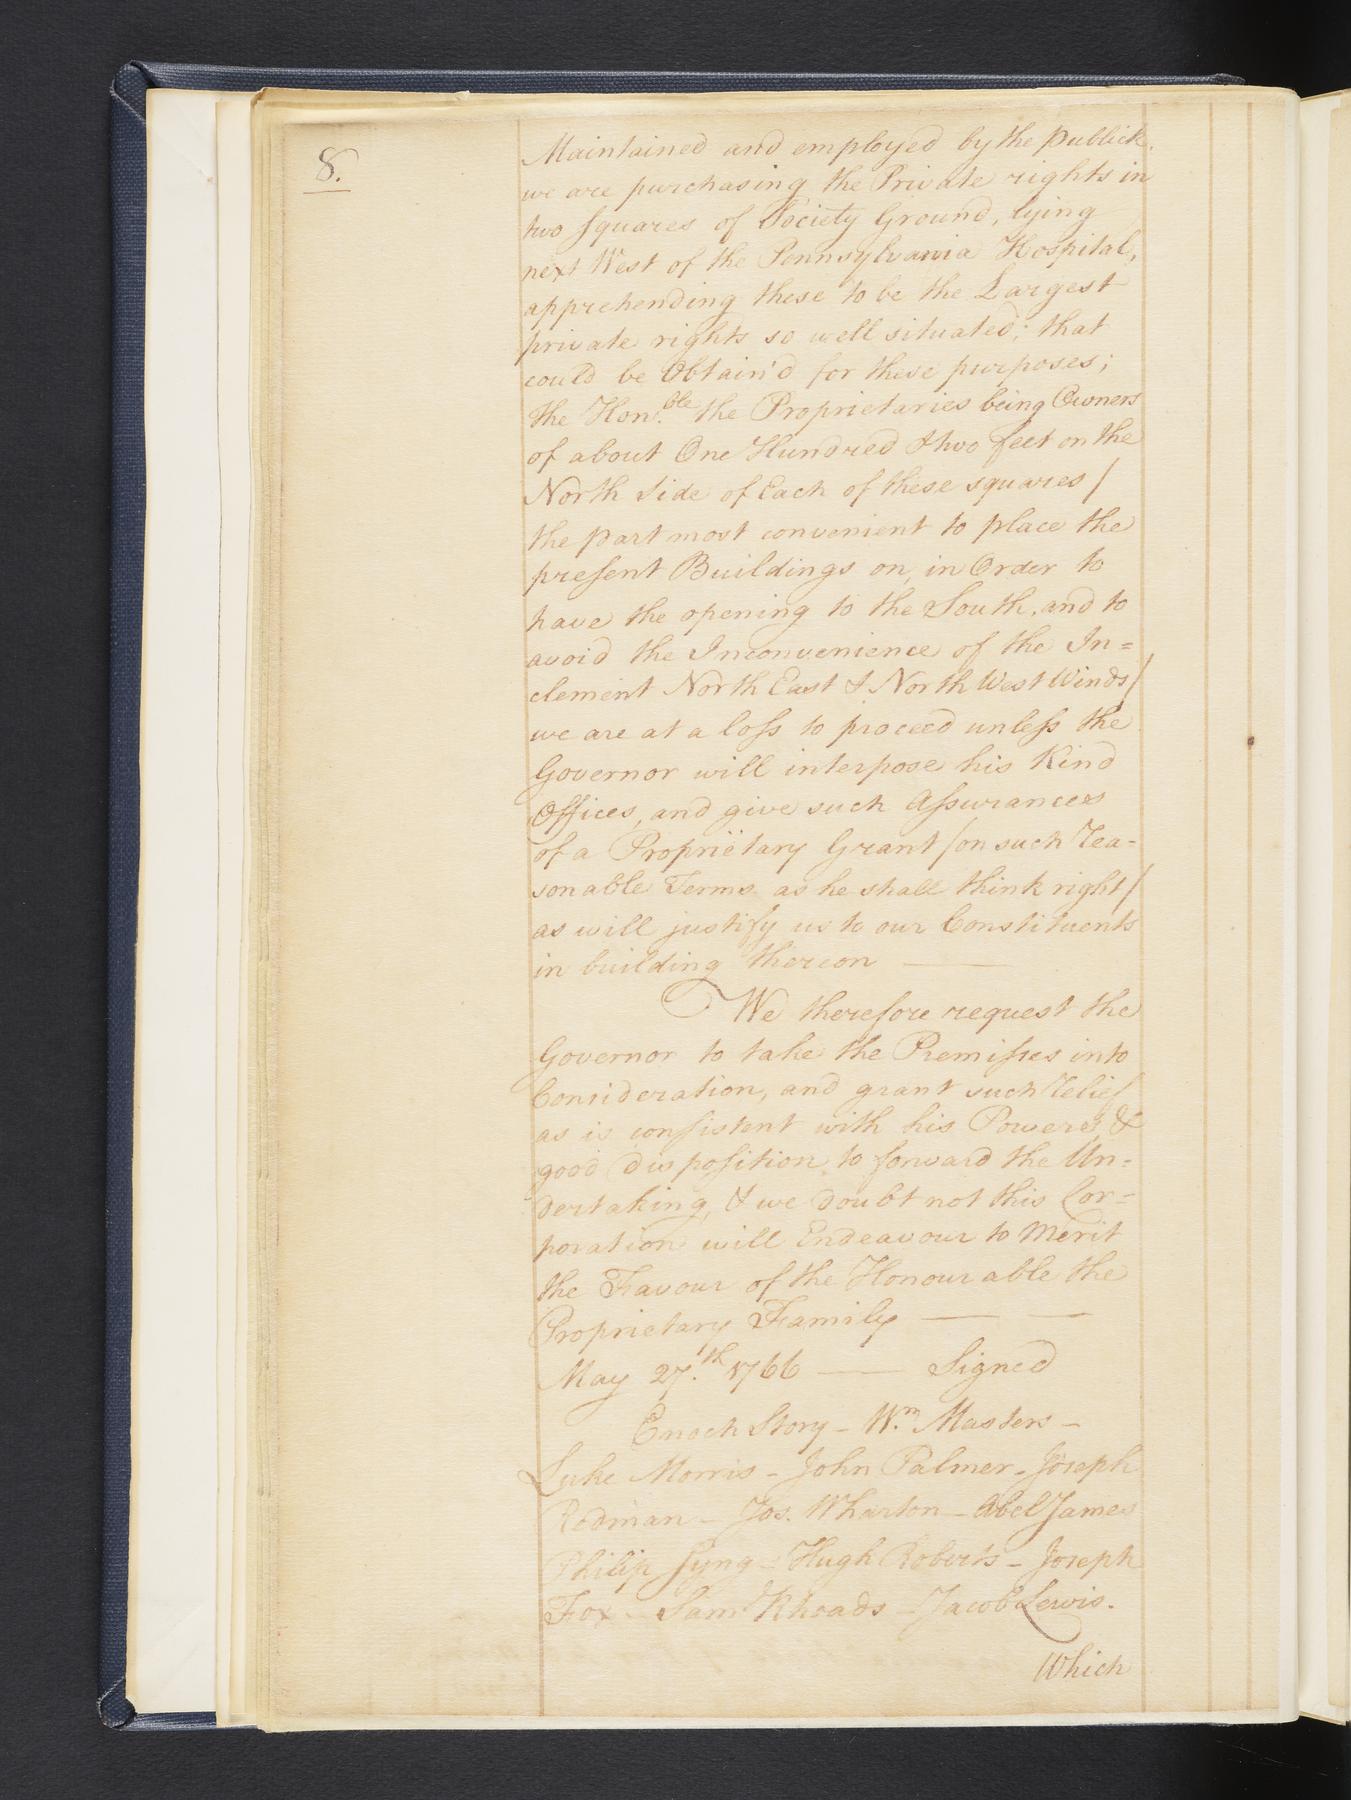 8.
Maintained and employed by the Publick.
we are purchasing the Private rights in
two Squares of Society Ground, lying
next West of the Pennsylvania Hospital,
apprehending these to be the Largest
private rights so well situated; that
could be Obtain'd for these purposes;
the Hon.ble the Proprietaries being Owners
of about One Hundred & two feet on the
North Side of Each of these squares /
the part most convenient to place the
present Buildings on, in Order to
have the opening to the South, and to
avoid the Inconvenience of the In=
clement North East & North West Winds /
we are at a loss to proceed unless the
Governor will interpose his Kind
Offices, and give such Assurances
of a Proprietary Grant / on such rea-
sonable Terms as he shall think right /
as will justify us to our Constituents
in building thereon ——
We therefore request the
Governor to take the Premisses into
Consideration, and grant such relief
as is consistent with his Powers, &
good disposition, to forward the Un=
dertaking, & we doubt not this Cor=
poration will Endeavour to Merit
the Favour of the Honourable the
Proprietary Family —— ——
May 27.th 1766 —— Signed
Enoch Story - W.m Masters -
Luke Morris - John Palmer - Joseph
Redman - Jos. Wharton - Abel James
Philip Syng - Hugh Roberts - Joseph
Fox - Sam.l Rhoads - Jacob Lewis.
Which